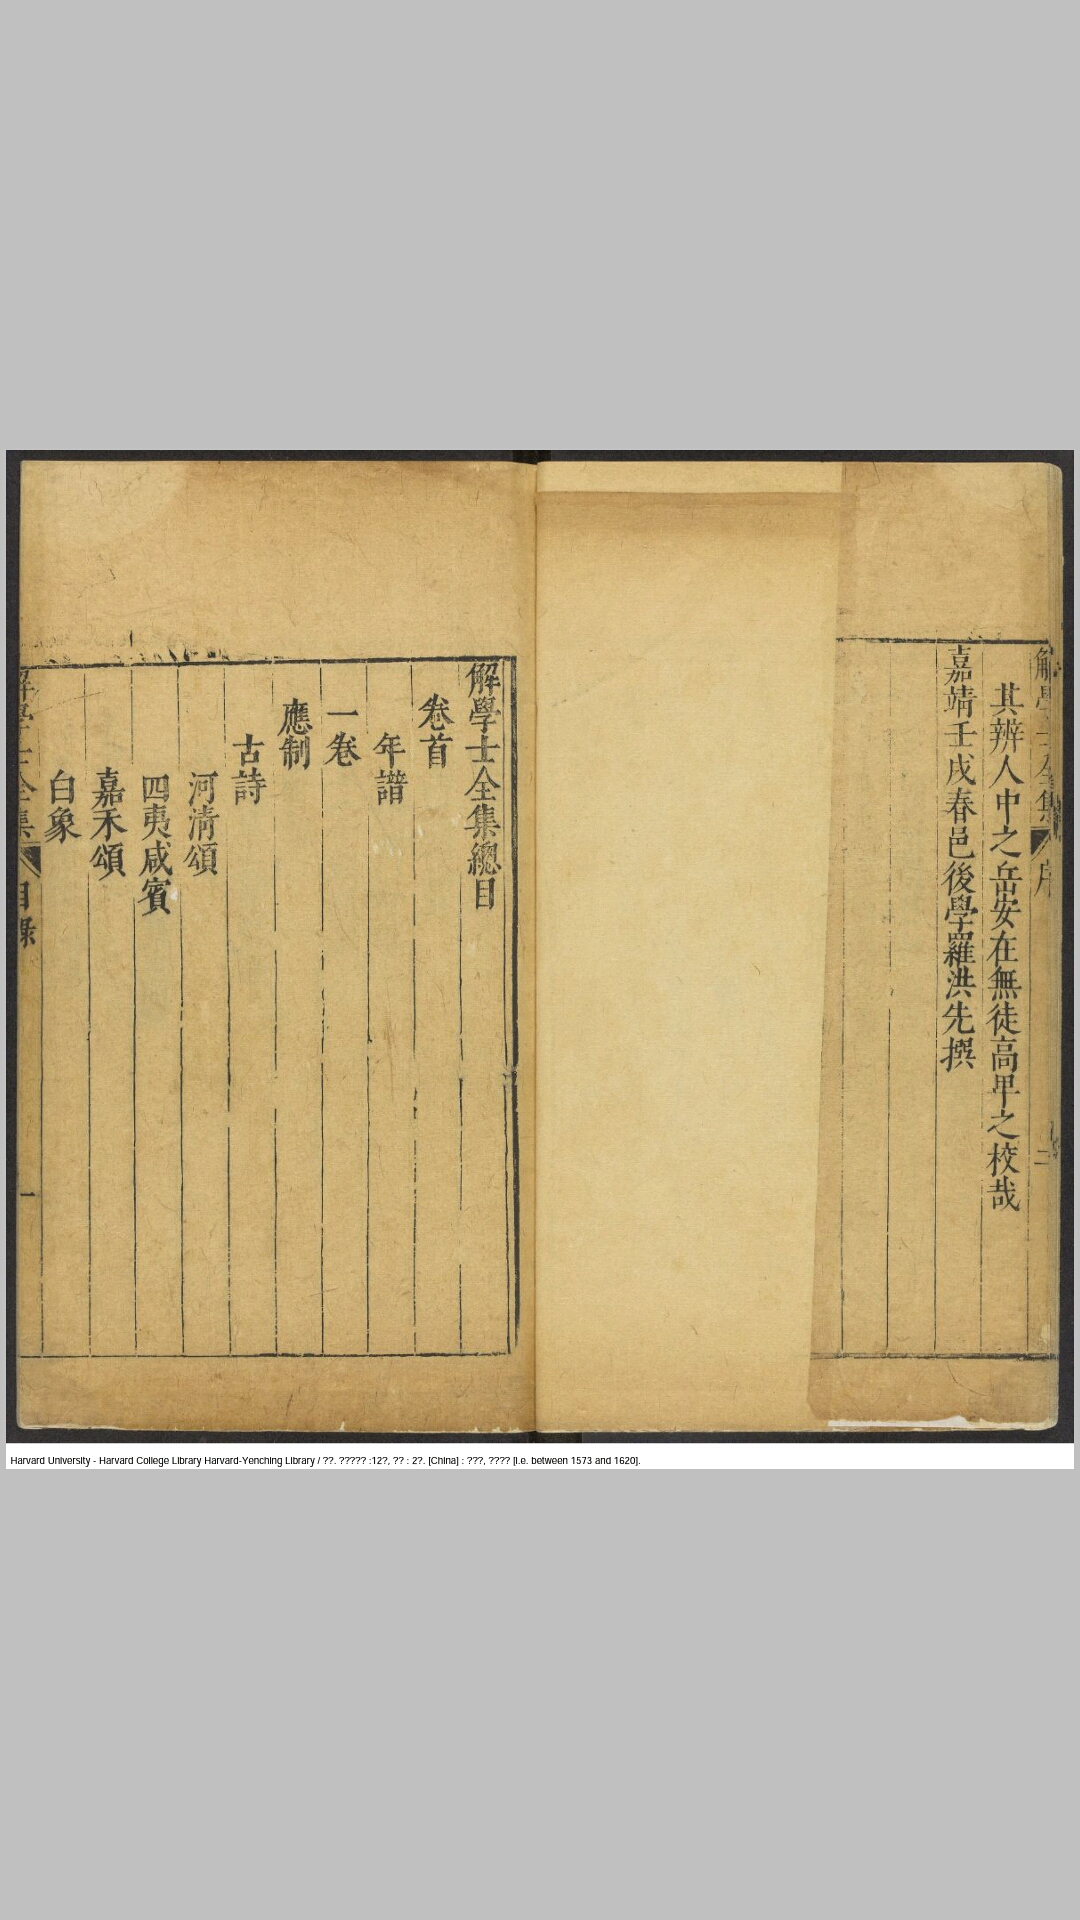 解學士全集 序 二
其辨人中之岳安在無徒高甲之校哉
嘉靖壬戌春邑後學羅洪先撰
解學士全集總目
卷首
年譜
一卷
應制
古詩
河淸頌
四夷咸賓
嘉禾頌
白象
解學士全集 目錄 一
Harvard University - Harvard College Library Harvard-Yenching Library / ??. ????? :12?, ?? : 2?. [China] : ???, ???? [i.e. between 1573 and 1620].